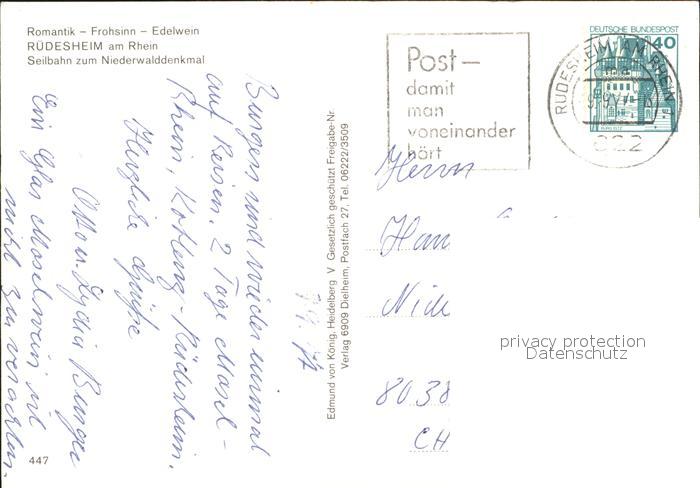 Romantik – Frohsinn – Edelwein
RÜDESHEIM am Rhein
Seilbahn zum Niederwalddenkmal
Burgers sind wieder einmal
auf Reisen. 2 Tage Mosel -
Rhein, Koblenz - Rüdesheim.
Herzliche Grüße
Otto u. Lydia Burger
Ein Glas Moselwein ist
nicht zu verachten.
447
Edmund von König, Heidelberg V Gesetzlich geschützt Freigabe-Nr.
Verlag 6909 Dielheim, Postfach 27, Tel. 06222/3509
Post –
damit
man
voneinander
hört
DEUTSCHE BUNDESPOST
40
BURG ELTZ
RÜDESHEIM AM RHEIN
622
Herrn
8038
CH
privacy protection
Datenschutz